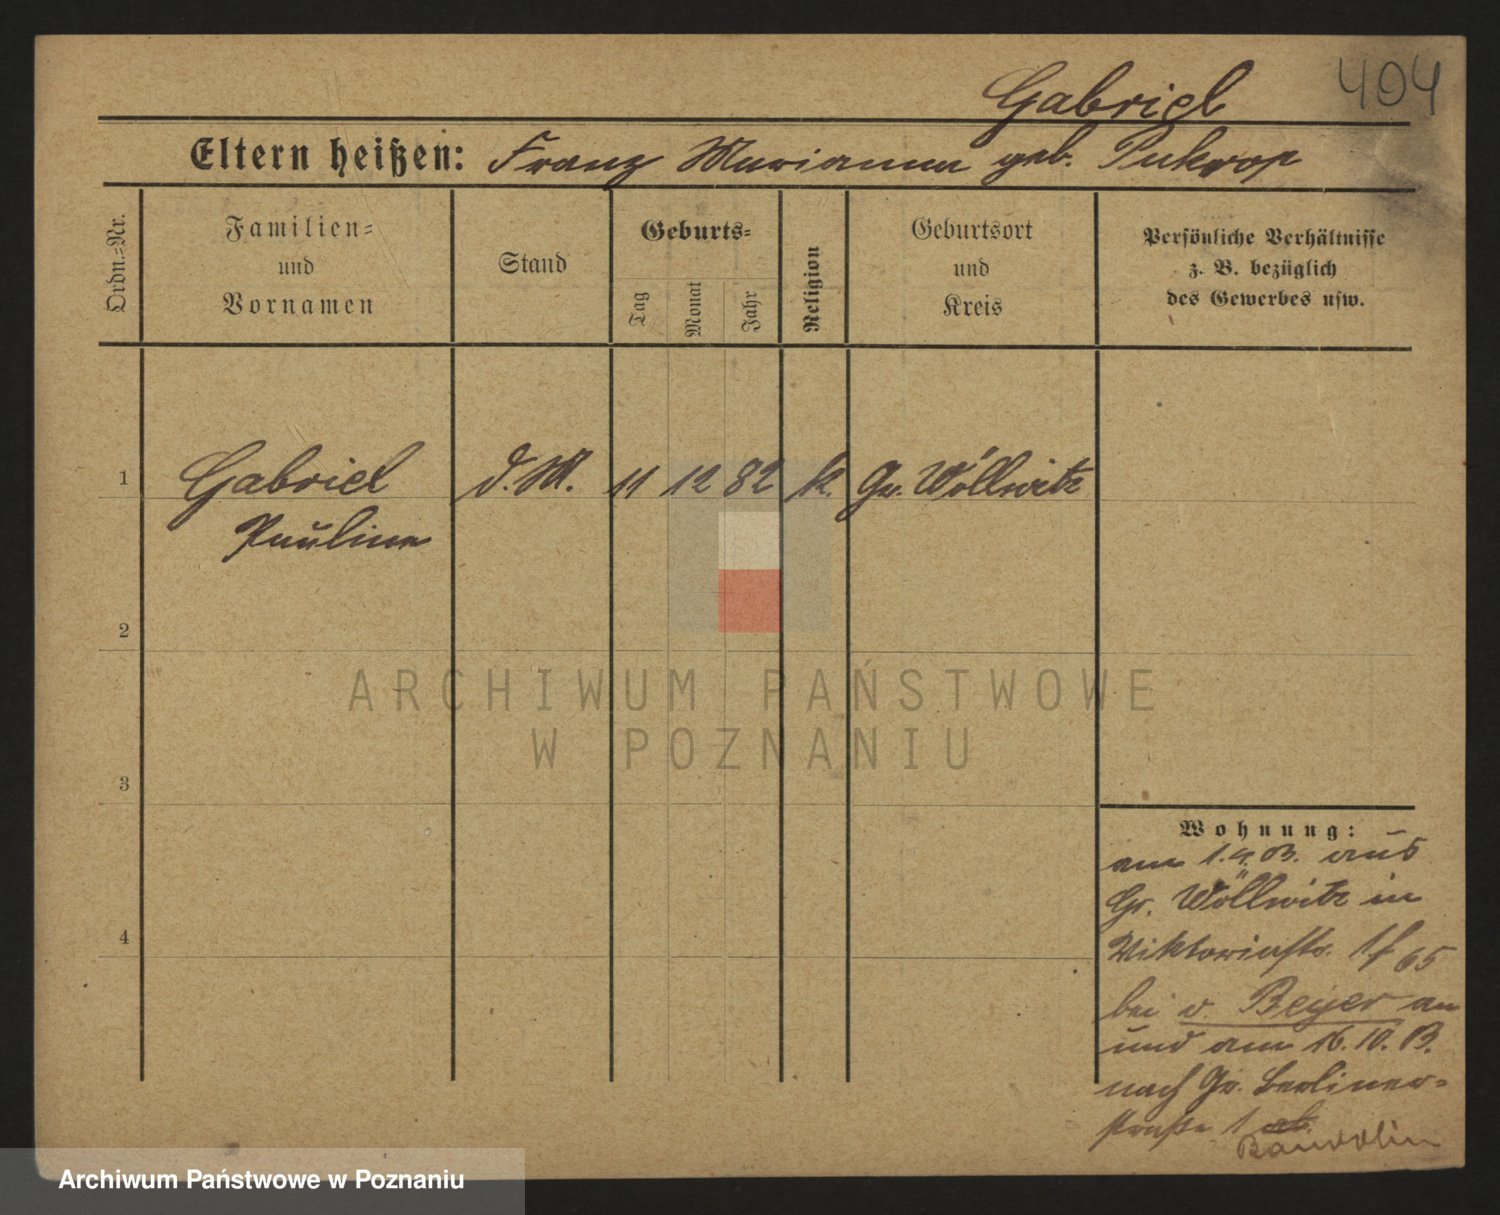 404
Gabriel
Eltern heißen: Franz Marianna geb. Pukrop
Ordn.-Nr.
Familien-
und
Vornamen
Stand
Geburts-
Tag
Monat
Jahr
Religion
Geburtsort
und
Kreis
Persönliche Verhältnisse
z. B. bezüglich
des Gewerbes usw.
1 Gabriel d. M. 11 12 82 k. Gr. Wöllwitz
Pauline
2
3
4
Wohnung:
am 1.4.03. aus
Gr. Wöllwitz in
Viktoriastr.
bei v. Beyer an
und am 16.10.
nach Gr. Berliner-
straße 1 ab.
ARCHIWUM PAŃSTWOWE
W POZNANIU
Archiwum Państwowe w Poznaniu